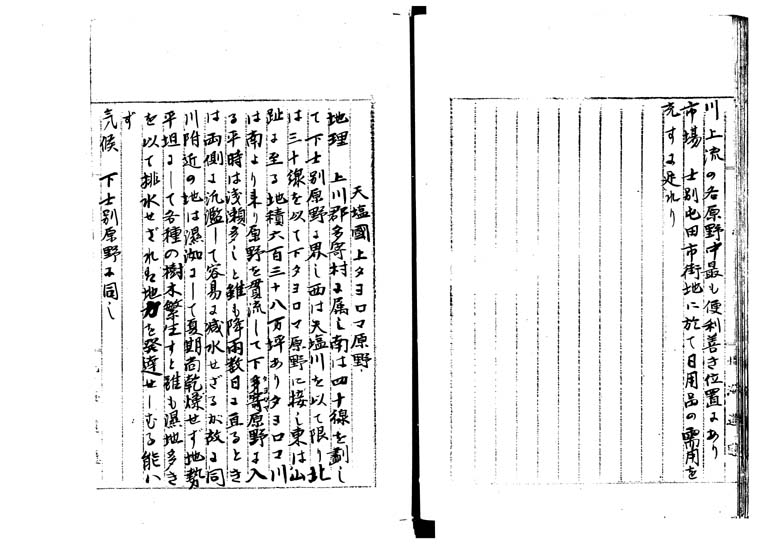 川上流の各原野中最も便利善き位置にあり
市場　士別屯田市街地に於て日用品の需用を
充すに足れり
天塩國上タヨロマ原野
地理　上川郡多寄村に属し南は四十線を劃し
て下士別原野に界し西は天塩川を以て限り北
は三十線を以て下タヨロマ原野に接し東は山
趾に至る地積六百三十八万坪ありタヨロマ川
は南より来り原野を貫流して下多寄原野に入
る平時は浅瀬多しと雖も降雨数日に亘るとき
は両側に氾濫して容易に减水せざるが故に同
川附近の地は濕泇にして夏期尚乾燥せず地勢
平坦にして各種の樹木繁生すと雖も濕地多き
を以て排水せざれは地力を発達せしむる能は
ず
気候　下士別原野に同し